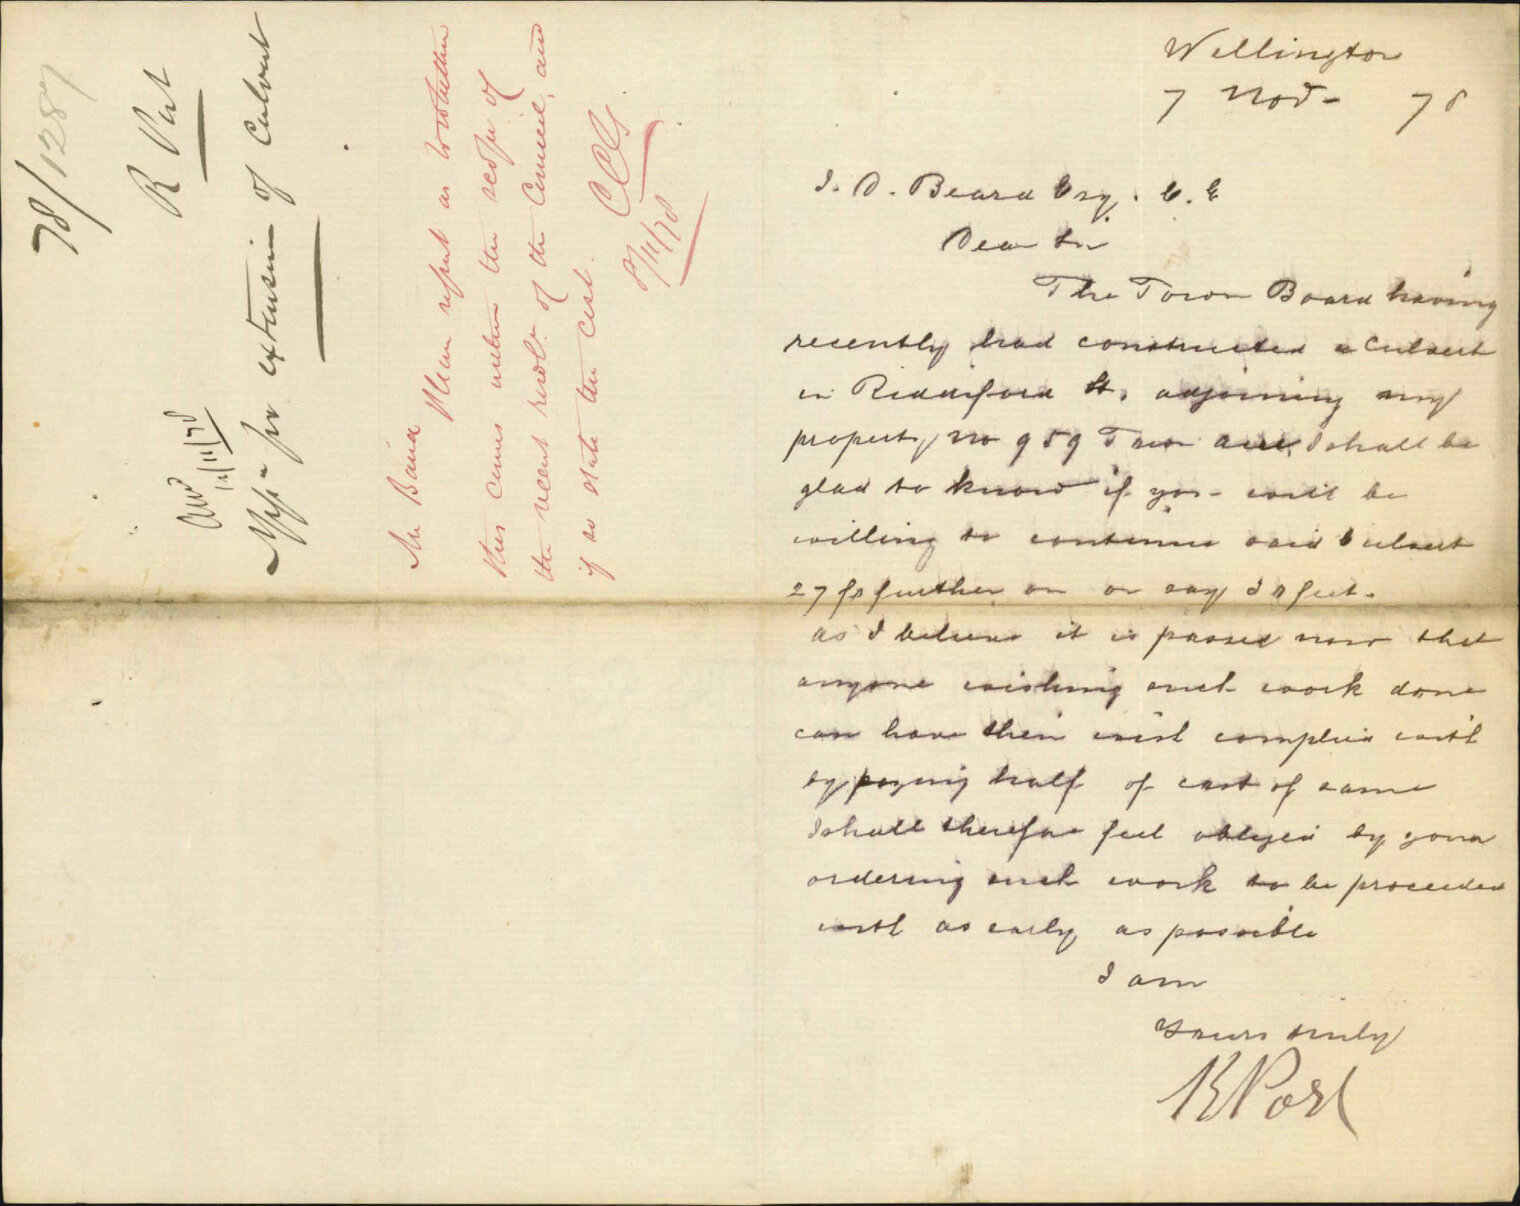 78/1287
R Port
Appn for extension of Culvert
12/11/78
Mr Baird
Please report as to whether
this comes within the scope of
the recent resoln of the Council, and
if so state the cost.
8/11/78
Wellington
7 Nov- 78
J. D. Beard Esq. C. E
Dear Sir
The Town Board having
recently had constructed a Culvert
in Riddiford St, adjoining my
property, No 959 Town Acre, I shall be
glad to know if you will be
willing to continue said Culvert
27 ft further on or say feet.
as I believe it is passed now that
anyone wishing such work done
can have their wish complied with
by paying half of cost of same
I shall therefore feel obliged by your
ordering such work to be proceeded
with as early as possible
I am
Yours truly
R Port